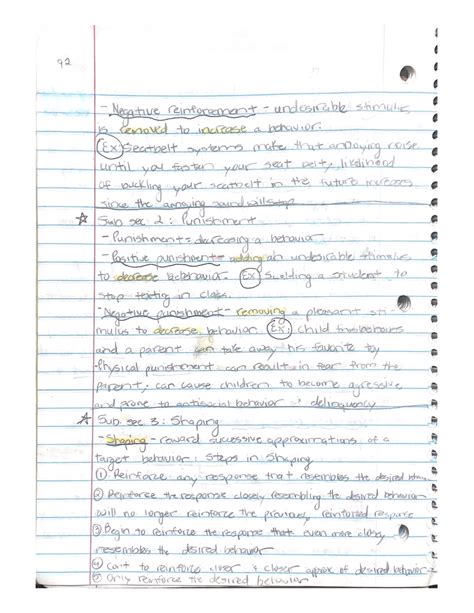 92
- Negative reinforcement - undesirable stimulus
is removed to increase a behavior.
Ex: Seatbelt systems make that annoying noise
until you fasten your seat belt, likelihood
of buckling your seatbelt in the future increases
since the annoying sound will stop
☆ Sub sec 2: Punishment
- Punishment = decreasing a behavior
- Positive punishment = adding an undesirable stimulus
to decrease behavior. Ex: Scolding a student to
stop texting in class.
- Negative punishment - removing a pleasant sti-
mulus to decrease behavior. Ex: child misbehaves
and a parent can take away his favorite toy
- Physical punishment can result in fear from the
parent, can cause children to become agressive
and prone to antisocial behavior → delinquency
☆ Sub sec 3: Shaping
- Shaping - reward successive approximations of a
target behavior: steps in Shaping
① Reinforce any response that resembles the desired
② Reinforce the response closely resembling the desired behavior
will no longer reinforce the previously reinforced response
③ Begin to reinforce the response that even more closely
resembles the desired behavior
④ Con't to reinforce closer & closer approx of desired behavior
⑤ Only reinforce the desired behavior